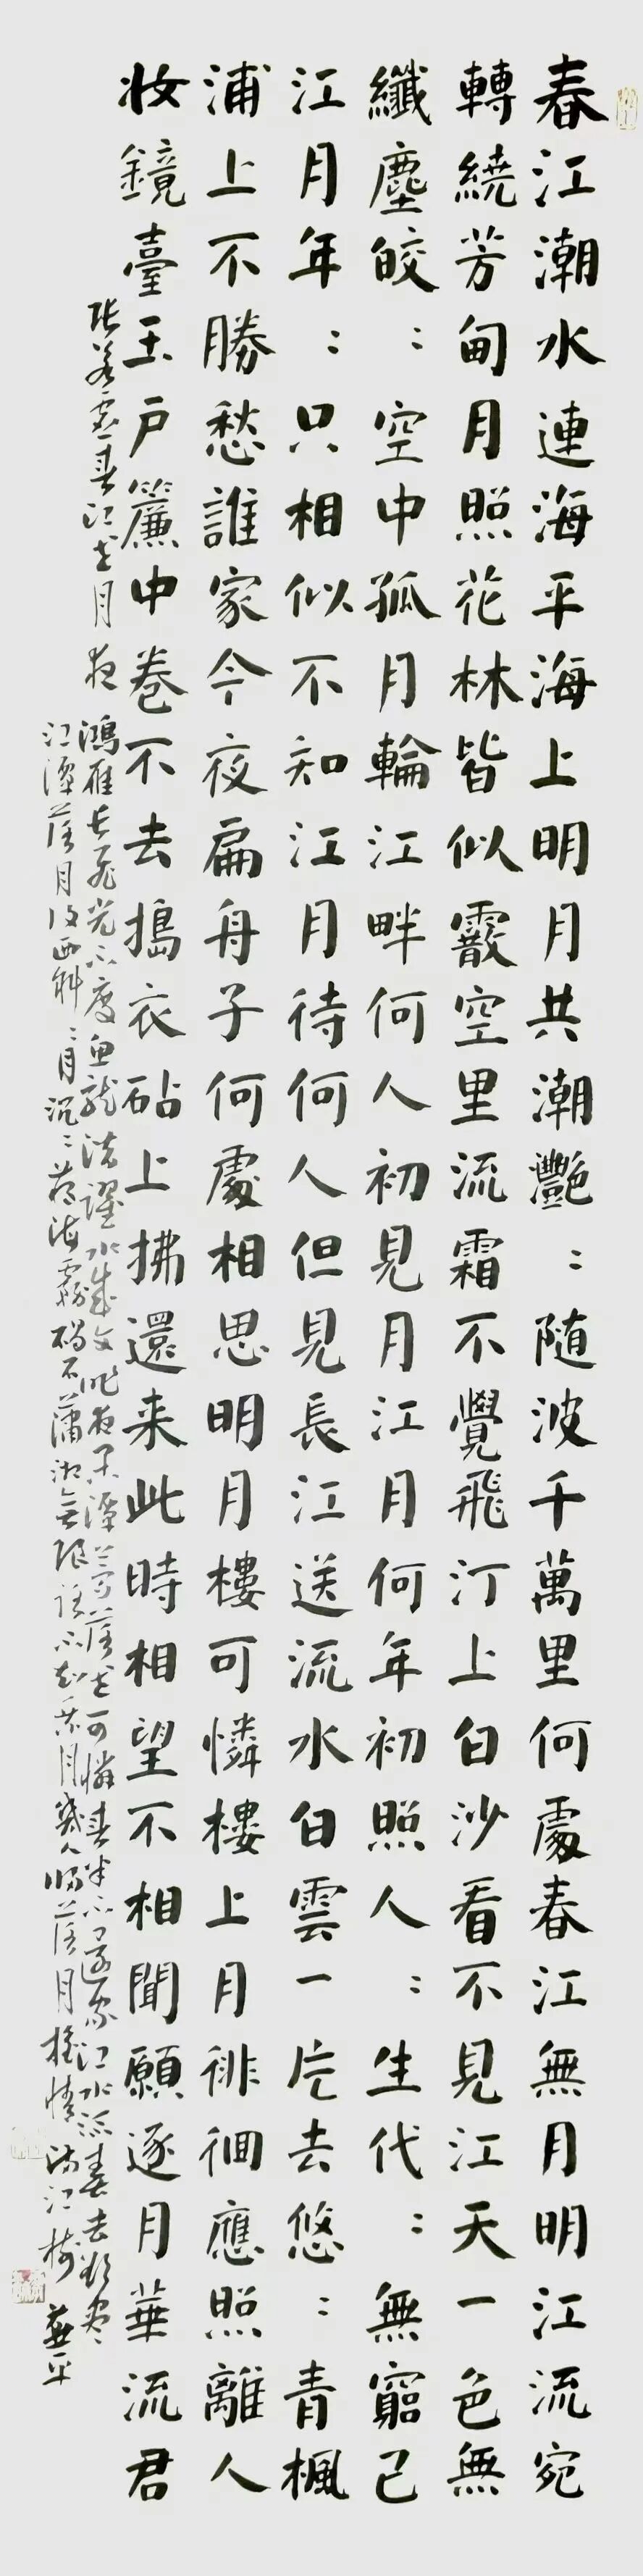 春江潮水連海平海上明月共潮灩:随波千萬里何處春江無月明江流宛
轉繞芳甸月照花林皆似霰空里流霜不覺飛汀上白沙看不見江天一色無
纖塵皎:空中孤月輪江畔何人初見月江月何年初照人:生代:無窮己
江月年:只相似不知江月待何人但見長江送流水白雲一片去悠:青楓
浦上不勝愁誰家今夜扁舟子何處相思明月樓可憐樓上月徘徊應照離人
妝鏡臺玉戸簾中卷不去搗衣砧上拂還来此時相望不相聞願逐月華流君
張若虚春江花月夜
鴻雁長飛光不度魚龍潜躍水成文昨夜闲潭夢落花可憐春半不還家江水流春去欲盡
江潭落月復西斜:月沉:藏海霧碣石瀟湘無限路不知乘月幾人歸落月摇情满江樹